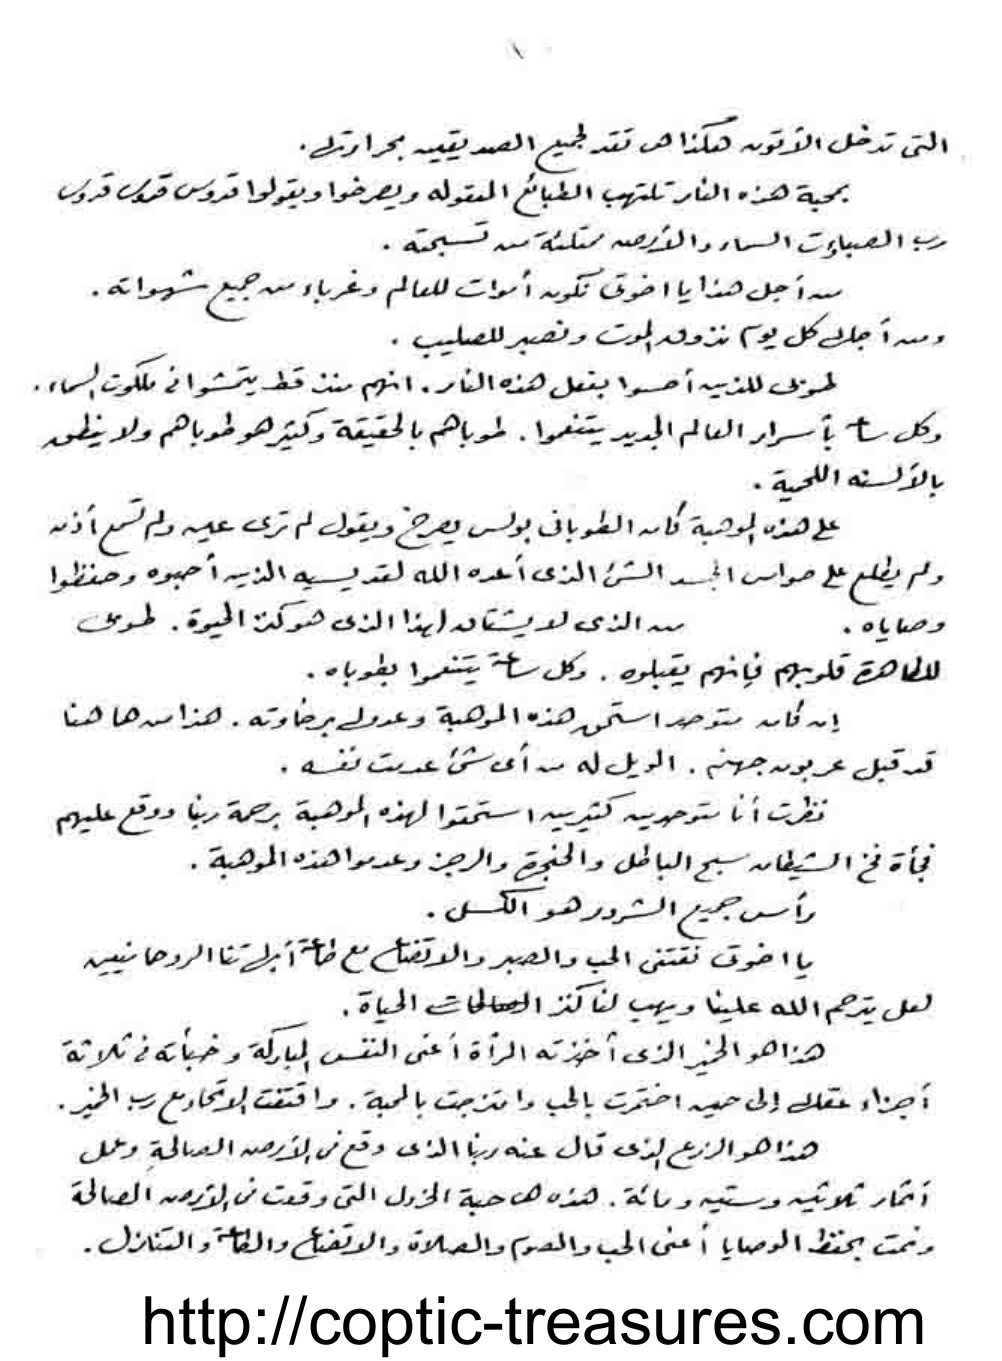 التى تدخل الأتون هكذا هى تقد لجميع الصديقين بحرارتها.
بمحبة هذه النار تلتهب الطبائع المقوله ويصرخوا ويقولوا قدوس قدوس قدوس
رب الصباؤت السماء والأرض ممتلئة من تسبحته .
من أجل هذا يا اخوتى نكون أموات للعالم وغرباء من جميع شهواته .
ومن أجله كل يوم نذوق الموت ونصبر للصليب .
طوبى للذين أحسوا بفعل هذه النار . انهم منذ قط يتمشوا فى ملكوت السماء .
وكل ساعة بأسرار العالم الجديد يتنعموا . طوباهم بالحقيقة وكثير هو طوباهم ولا ينطق
بالألسنه اللحمية .
على هذه الموهبة كان الطوبانى بولس يصرخ ويقول لم ترى عين ولم تسمع أذن
ولم يطلع على حواس الجسد الشئ الذى أعده الله لقديسيه الذين أحبوه وحفظوا
وصاياه . من الذى لا يشتاق لهذا الذى هو كنز الحيوة . طوبى
للطاهرة قلوبهم فإنهم يقبلوه . وكل ساعة يتنعموا بطوباه .
إن كان متوحد استحق هذه الموهبة وعدمها برخاوته . هذا من ها هنا
قد قبل عربون جهنم . الويل له من أى شئ عدمت نفسه .
نظرت أنا متوحدين كثيرين استحقوا لهذه الموهبة برحمة ربنا ووقع عليهم
فجأة فخ الشيطان سبح الباطل والحنجرة والرجز وعدموا هذه الموهبة .
رأس جميع الشرور هو الكسل .
يا اخوتى نقتنى الحب والصبر والاتضاع مع طاعة أبهاتنا الروحانيين
لعل يترحم الله علينا ويهب لنا كنز الحياة .
هذا هو الخمير الذى أخذته المرأة أعنى النفس المباركة وخبأته فى ثلاثة
أجزاء عقلها إلى حين اختمرت بالحب وامتزجت بالمحبة . واقتنت الاتحاد مع رب الخمير .
هذا هو الزرع الذى قال عنه ربنا الذى وقع فى الأرض الصالحة وعمل
أثمار ثلاثين وستين ومائة . هذه هى حبة الخردل التى وقعت فى الأرض الصالحة
ونمت بحفظ الوصايا أعنى الحب والصوم والصلاة والاتضاع والطاعة والتنازل .
http://coptic-treasures.com